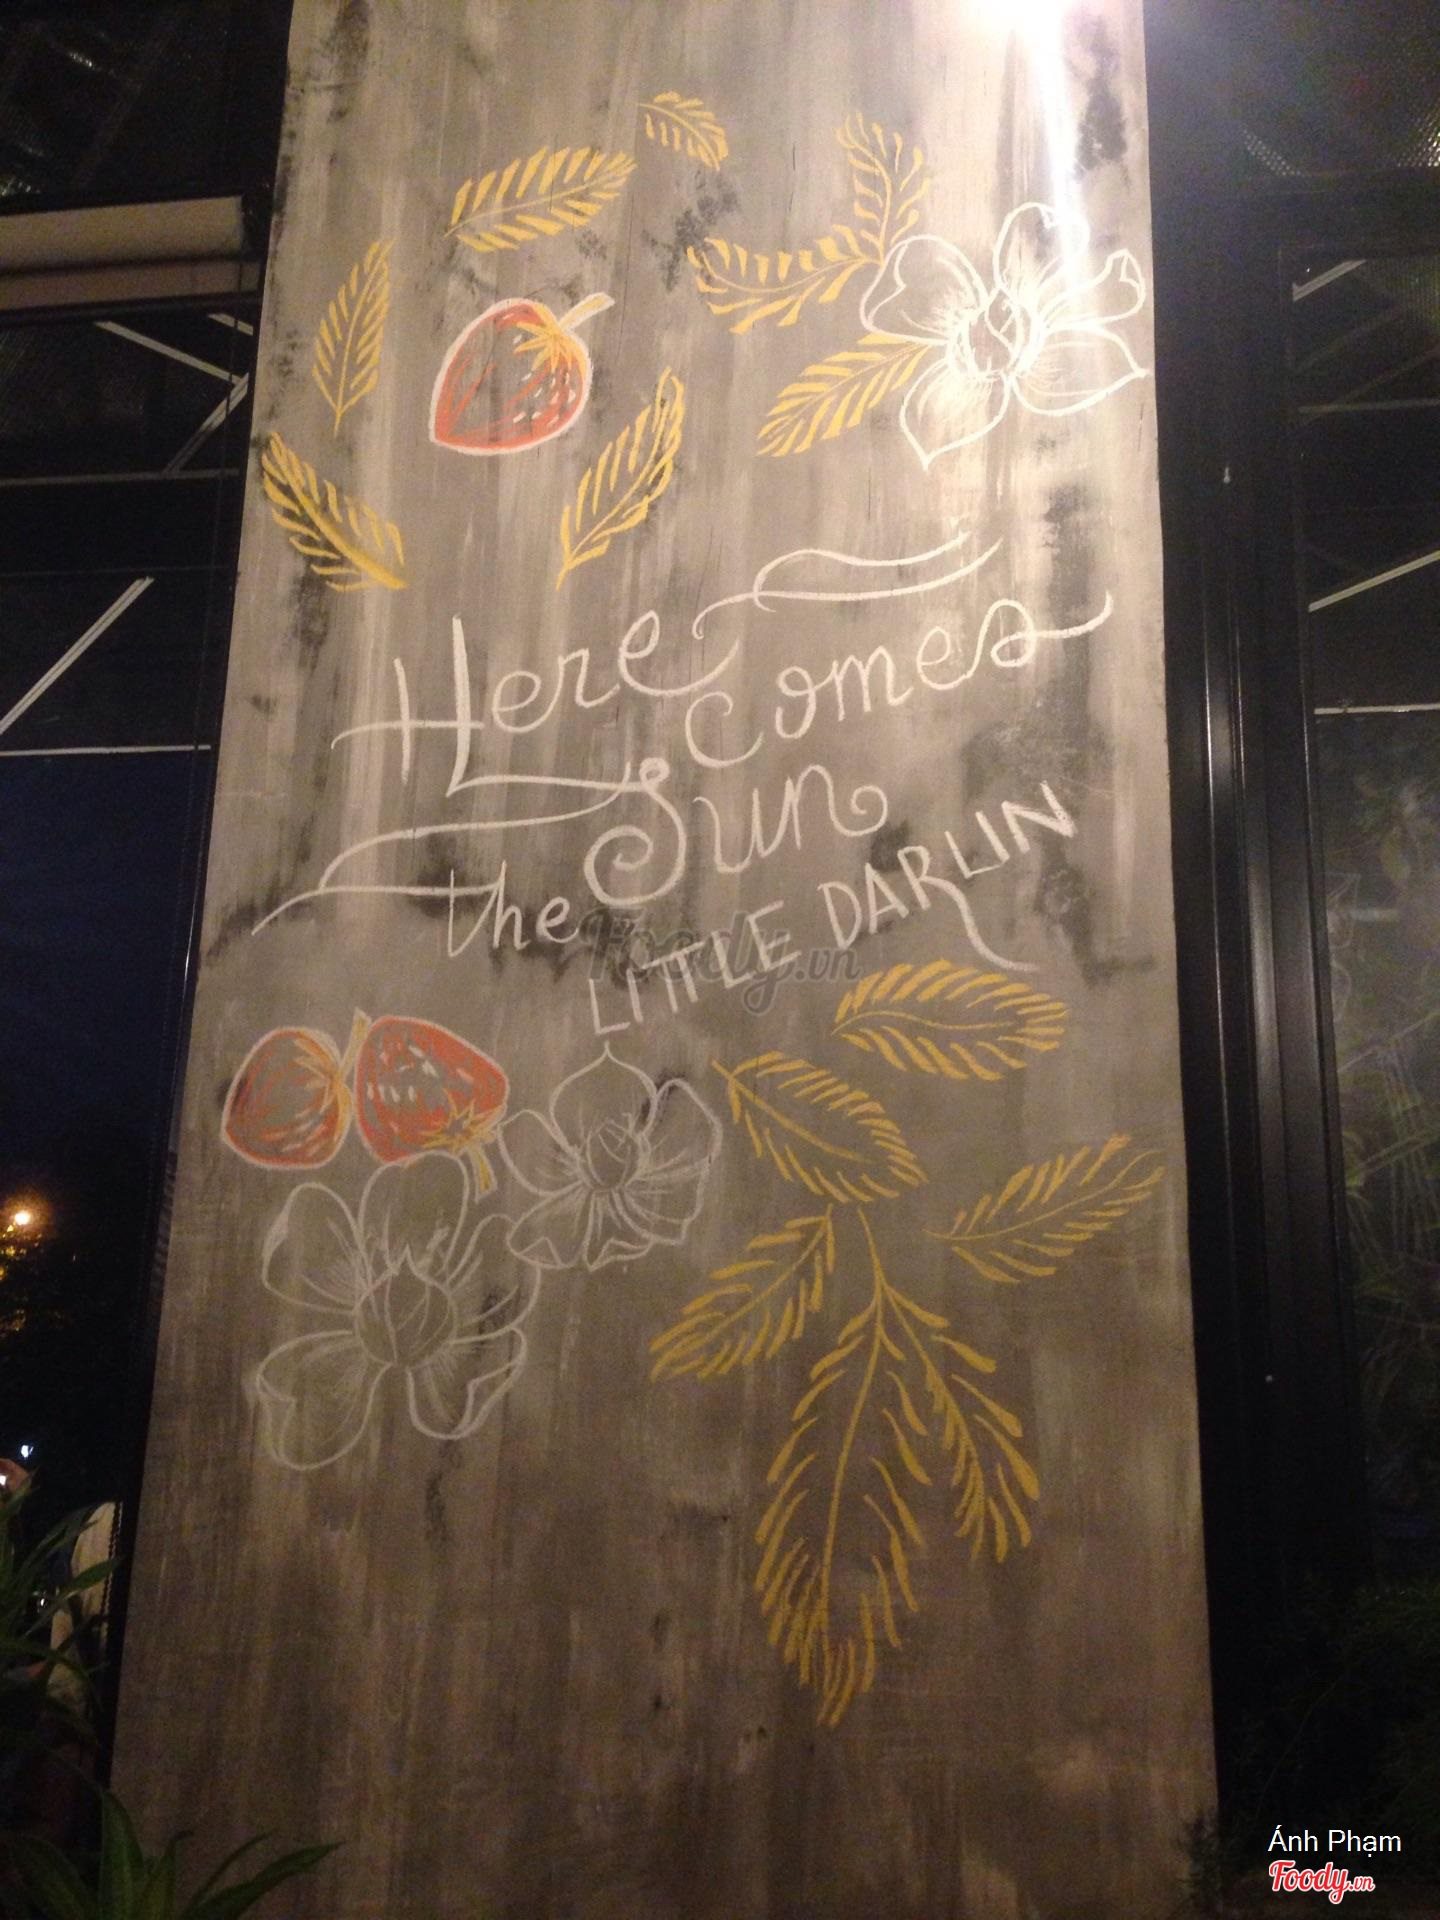 Here
Comes
the Sun
LITTLE DARLIN
Foody.vn
Ánh Phạm
Foody.vn